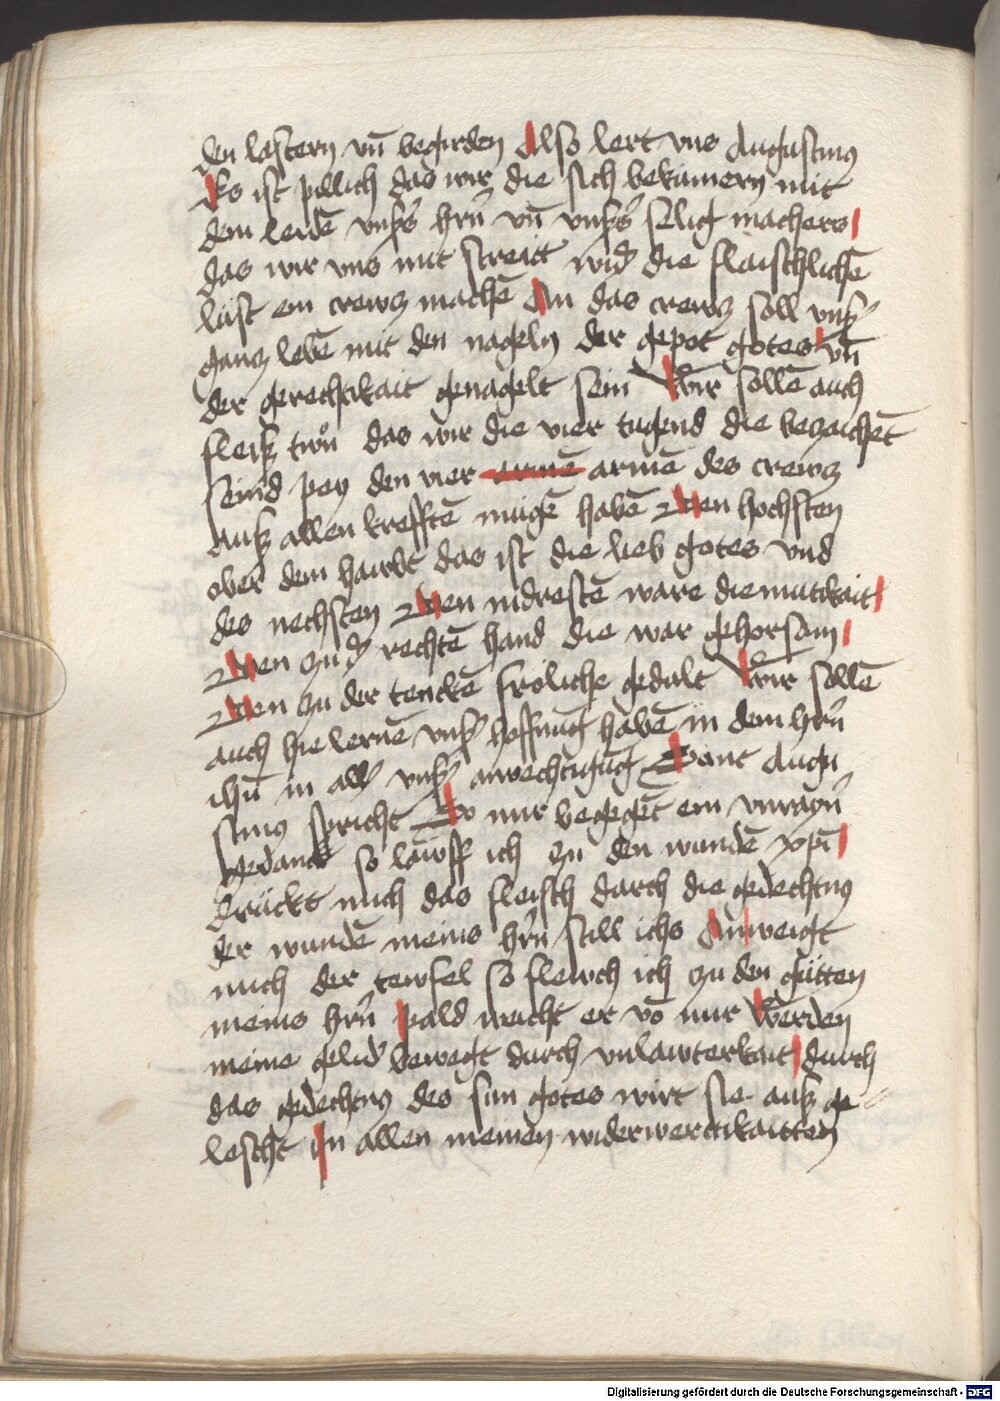 den lastern vn̄ begirden Also lert vns Augustinus
Es ist pillich das wir die sich bekümern mit
dem leidē vnßers hrn̄ vn̄ vnßers selig machers
das wir vns mit streitt wid' die flaischlichē
lüst ein crewcz machē An das crewcz soll vnßer
gancz lebē mit den nageln der gepot gotes vn̄
der gerechtikait genagelt sein Wir sollē auch
fleiß twn̊ das wir die vier tugend die beczaichēt
seind pey den vier armē armē des crewcz
Auß allen krefftē mügē habē Den hochsten
ober dem hawbt das ist die lieb gotes vnd
des nechsten Den nidrestē ware diemutikait
Den zu d' rechtē hand die war gehorsam
Den zu der tenckē fröliche gedult Wir sollē
auch hie lernē vnßer hoffnūg habē in dem hrn̄
ihū in all' vnßer anvechtūgūg Sant Augu
stinus spricht So mir begegēt ein vnrayn̄
gedanck so lawff ich zu den wundē xpī
Drückt mich das fleisch durch die gedechtnus
der wundē meins hrn̄ still ichs Anweigt
mich der tewfel so flewch ich zu den gütten
meins hrn̄ pald weicht er vō mir Werden
meine gelid' bewegt durch vnlawterkait durch
das gedechtnus des sun gotes wirt sie auß ge
lescht In allen meinen widerwerttikaitten
Digitalisierung gefördert durch die Deutsche Forschungsgemeinschaft - DFG